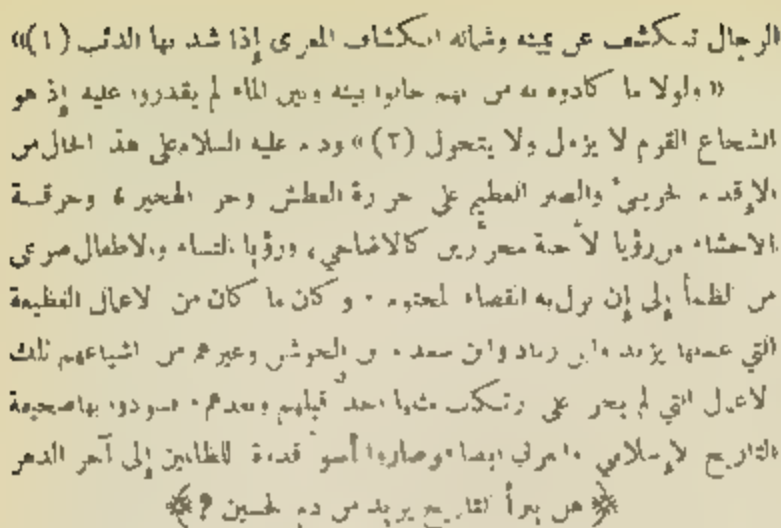 الرجال تنكشف عن يمينه وشماله انكشاف المعزى إذا شد بها الذئب (١)»
« ولولا ما كادوه به من انهم حالوا بينه وبين الماء لم يقدروا عليه إذ هو
الشجاع القوم لا يزول ولا يتحول (٢) » ودام عليه السلام على هذا الحال من
الإقدام الحربي والصبر العظيم على حرارة العطش وحر الهجير ، وحرقة
الاحشاء من رؤيا الأحبة مجزرين كالاضاحي ، ورؤيا النساء والاطفال صرعى
من الظمأ إلى إن نزل به القضاء المحتوم . وكان ما كان من الاعمال الفظيعة
التي عملها يزيد وابن زياد وابن سعد و الحوشن وغيرهم من اشياعهم تلك
الاعمال التي لم يجر على ارتكاب مثلها احد قبلهم وبعدهم . فسودوا بها صحيفة
التاريخ الإسلامي والعربي ايضا وصاروا أسوأ قدوة للظالمين إلى آخر الدهر
هل يبرأ التاريخ يزيد من دم الحسين ?